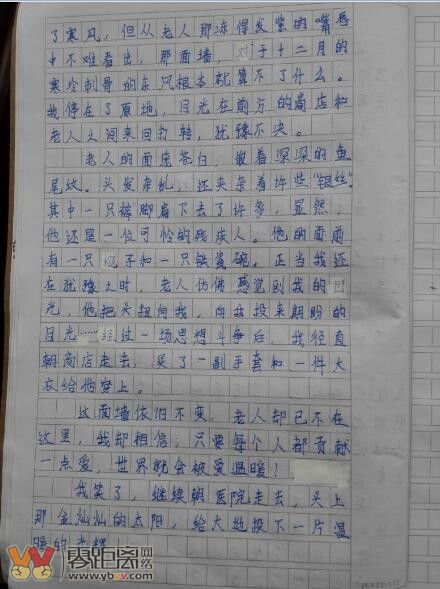 了寒风，但从老人那冻得发紫的嘴唇
中不难看出，那面墙，对于十二月的
寒冷刺骨的东风根本就算不了什么。
我停在了原地，目光在前方的商店和
老人之间来回打转，犹豫不决。
老人的面庞苍白，嵌着深深的鱼
尾纹。头发杂乱，还夹杂着许些“银丝”
其中一只裤脚扁下去了许多，显然，
他还是一位可怜的残疾人。他的面前
有一只 子和一只铁瓷碗。正当我还
在犹豫之时，老人仿佛感觉到我的目
光，他把头扭向我，向我投来期盼的
目光……经过一场思想斗争后，我径直
朝商店走去，买了一副手套和一件大
衣给他穿上。
这面墙依旧不变，老人却已不在
这里，我却相信，只要每个人都贡献
一点爱，世界就会被爱温暖！
我笑了，继续朝医院走去，头上
那金灿灿的太阳，给大地投下一片温
暖的光辉！
零距离网络
www.ybvv.com